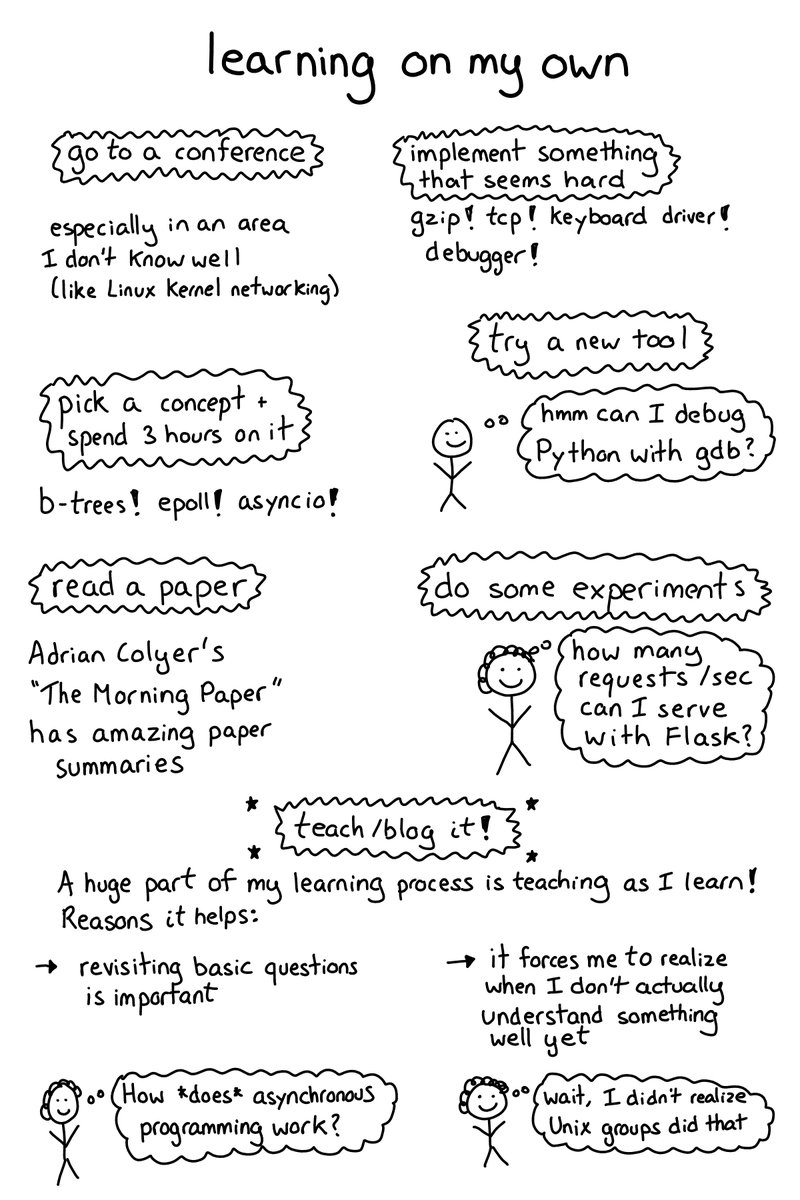 learning on my own
go to a conference
especially in an area
I don't know well
(like Linux Kernel networking)
implement something
that seems hard
gzip! tcp! keyboard driver!
debugger!
pick a concept +
spend 3 hours on it
b-trees! epoll! asyncio!
try a new tool
hmm can I debug
Python with gdb?
read a paper
Adrian Colyer's
"The Morning Paper"
has amazing paper
summaries
do some experiments
how many
requests/sec
can I serve
with Flask?
teach/blog it!
A huge part of my learning process is teaching as I learn!
Reasons it helps:
→ revisiting basic questions
is important
How *does* asynchronous
programming work?
→ it forces me to realize
when I don't actually
understand something
well yet
wait, I didn't realize
Unix groups did that